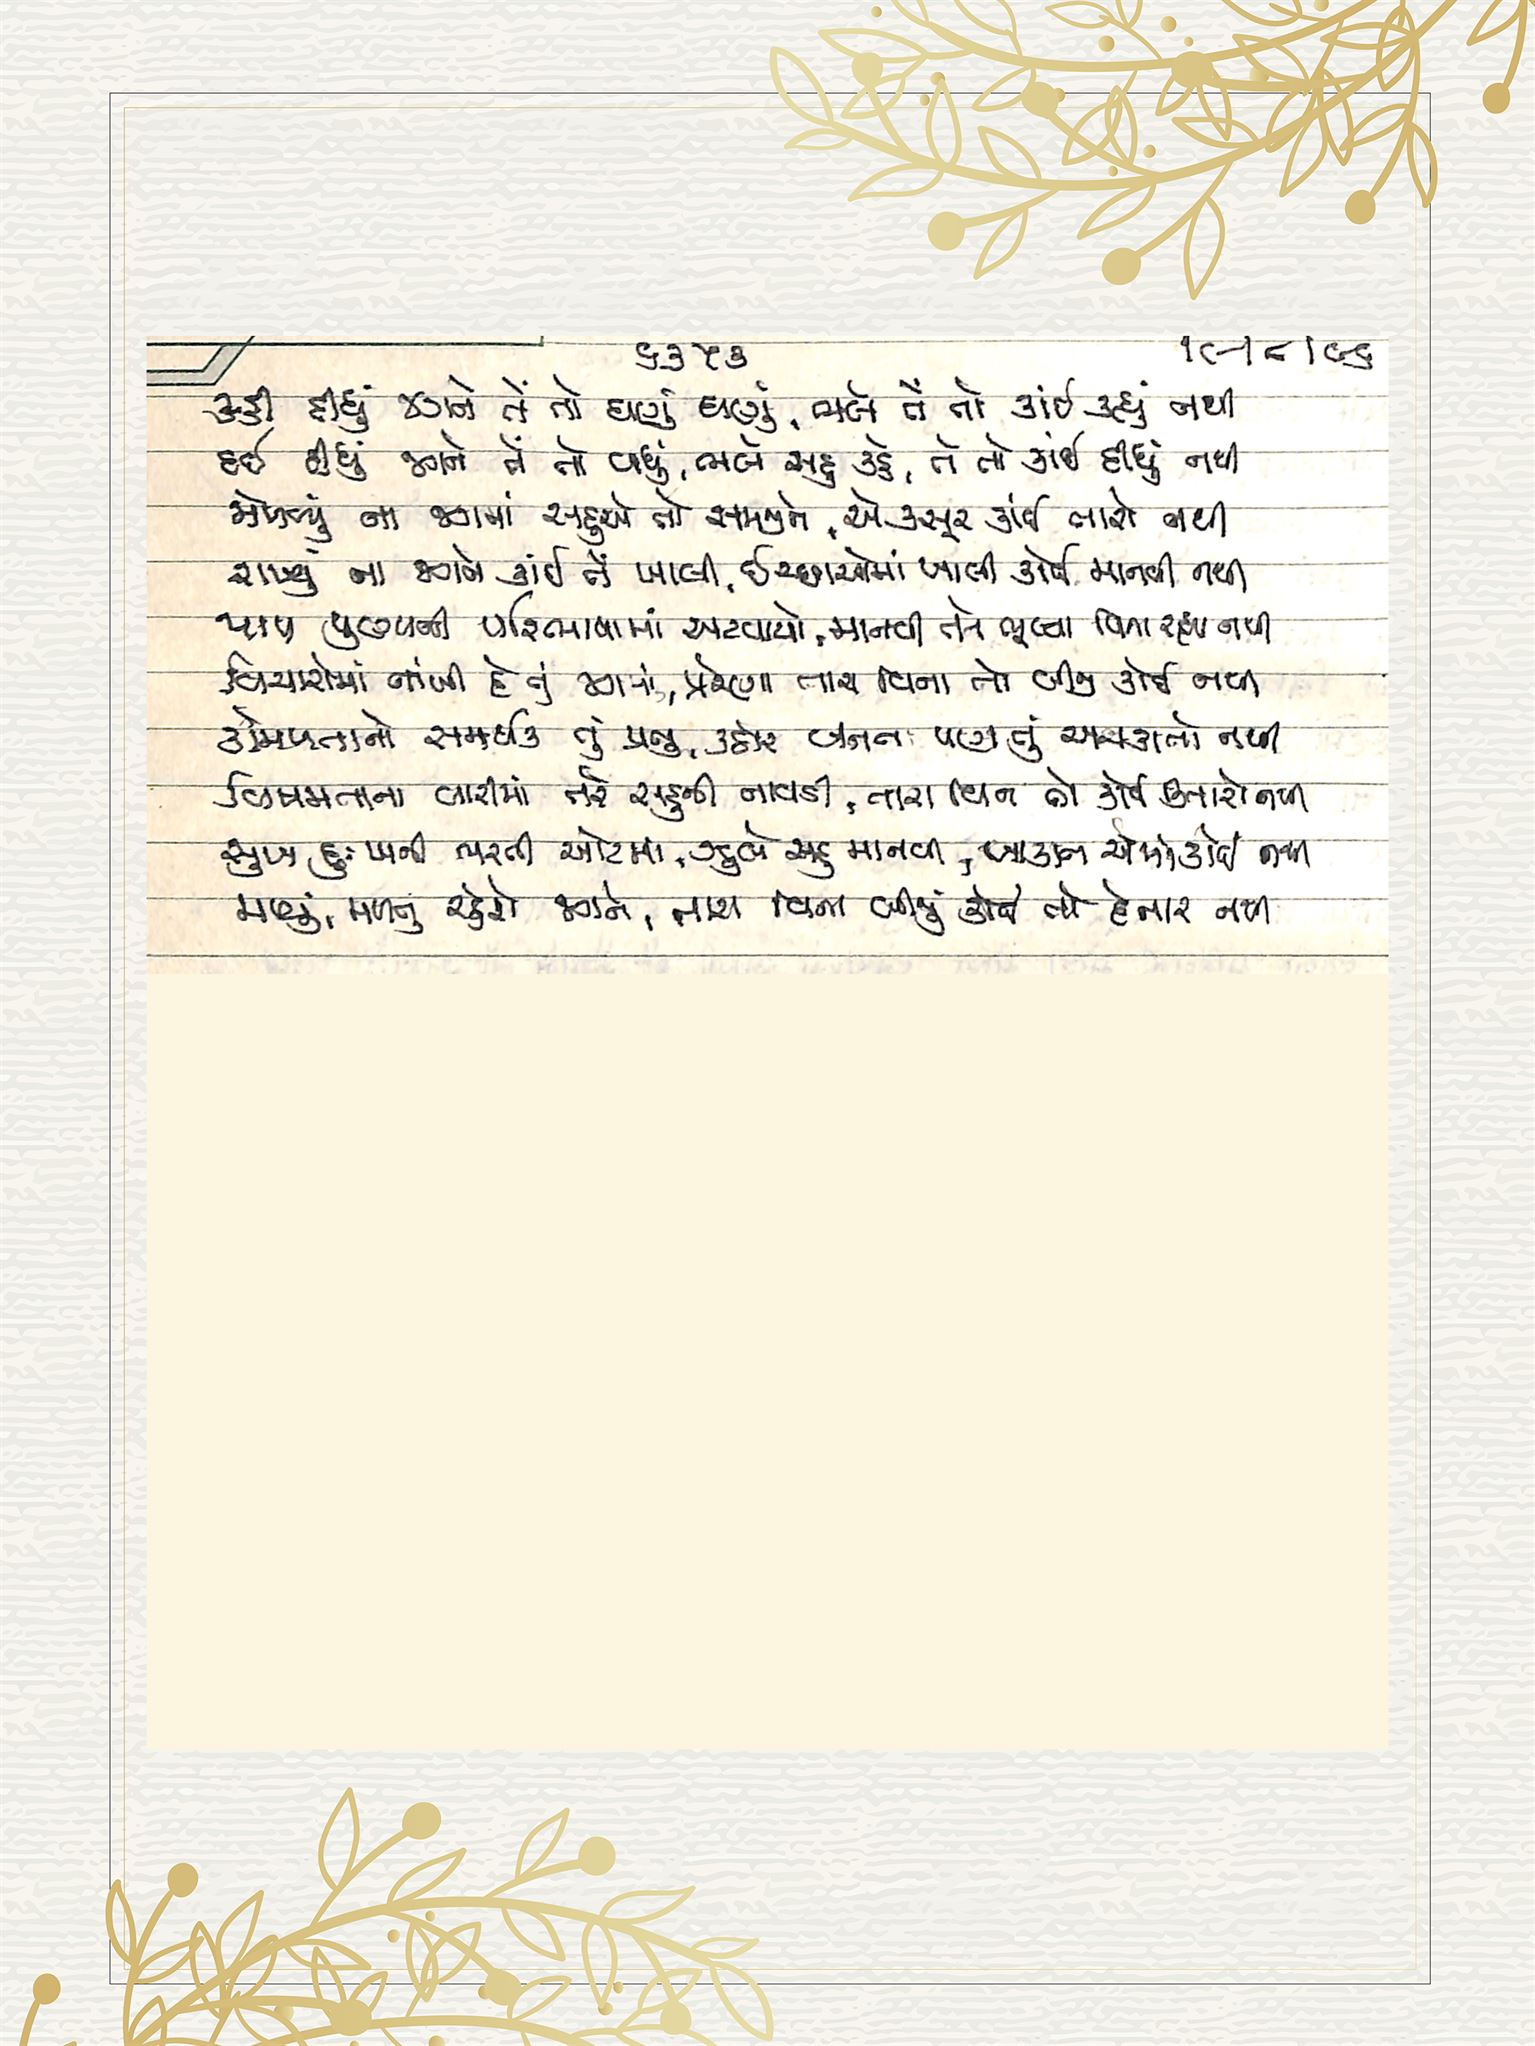 ૬૩૫૩ ૧૯-૮-૧૯૯૬
કહી દીધું જગને તેં તો ઘણું ઘણું, ભલે તેં તો કાંઈ કહ્યું નથી
દઈ દીધું જગને તેં તો બધું, ભલે સહુ કહે, તેં તો કાંઈ દીધું નથી
મેળવ્યું ના જગમાં સહુએ તો સમજીને, એ કસૂર કાંઈ તારો નથી
રાખ્યું ના જગને કાંઈ તેં ખાલી, ઈચ્છાઓમાં ખાલી કોઈ માનવી નથી
પાપ પુણ્યની પરિભાષામાં અટવાયો, માનવી તને ભૂલ્યા વિના રહ્યા નથી
વિચારોમાં નાંખી દે તું જગમાં, પ્રેરણા તારા વિના તો બીજું કોઈ નથી
કોમળતાનો સમર્થક તું પ્રભુ, કઠોર બનતા પણ તું અચકાતો નથી
વિષમતાના વારિમાં તરે સહુની નાવડી, તારા વિના તો કોઈ કિનારો નથી
સુખ દુઃખની ભરતી ઓટમાં, ઝઝૂમે સહુ માનવી, બાકાત એમાં કોઈ નથી
મળ્યું, મળતું રહેશે જગને, તારા વિના બીજું કોઈ તો દેનાર નથી